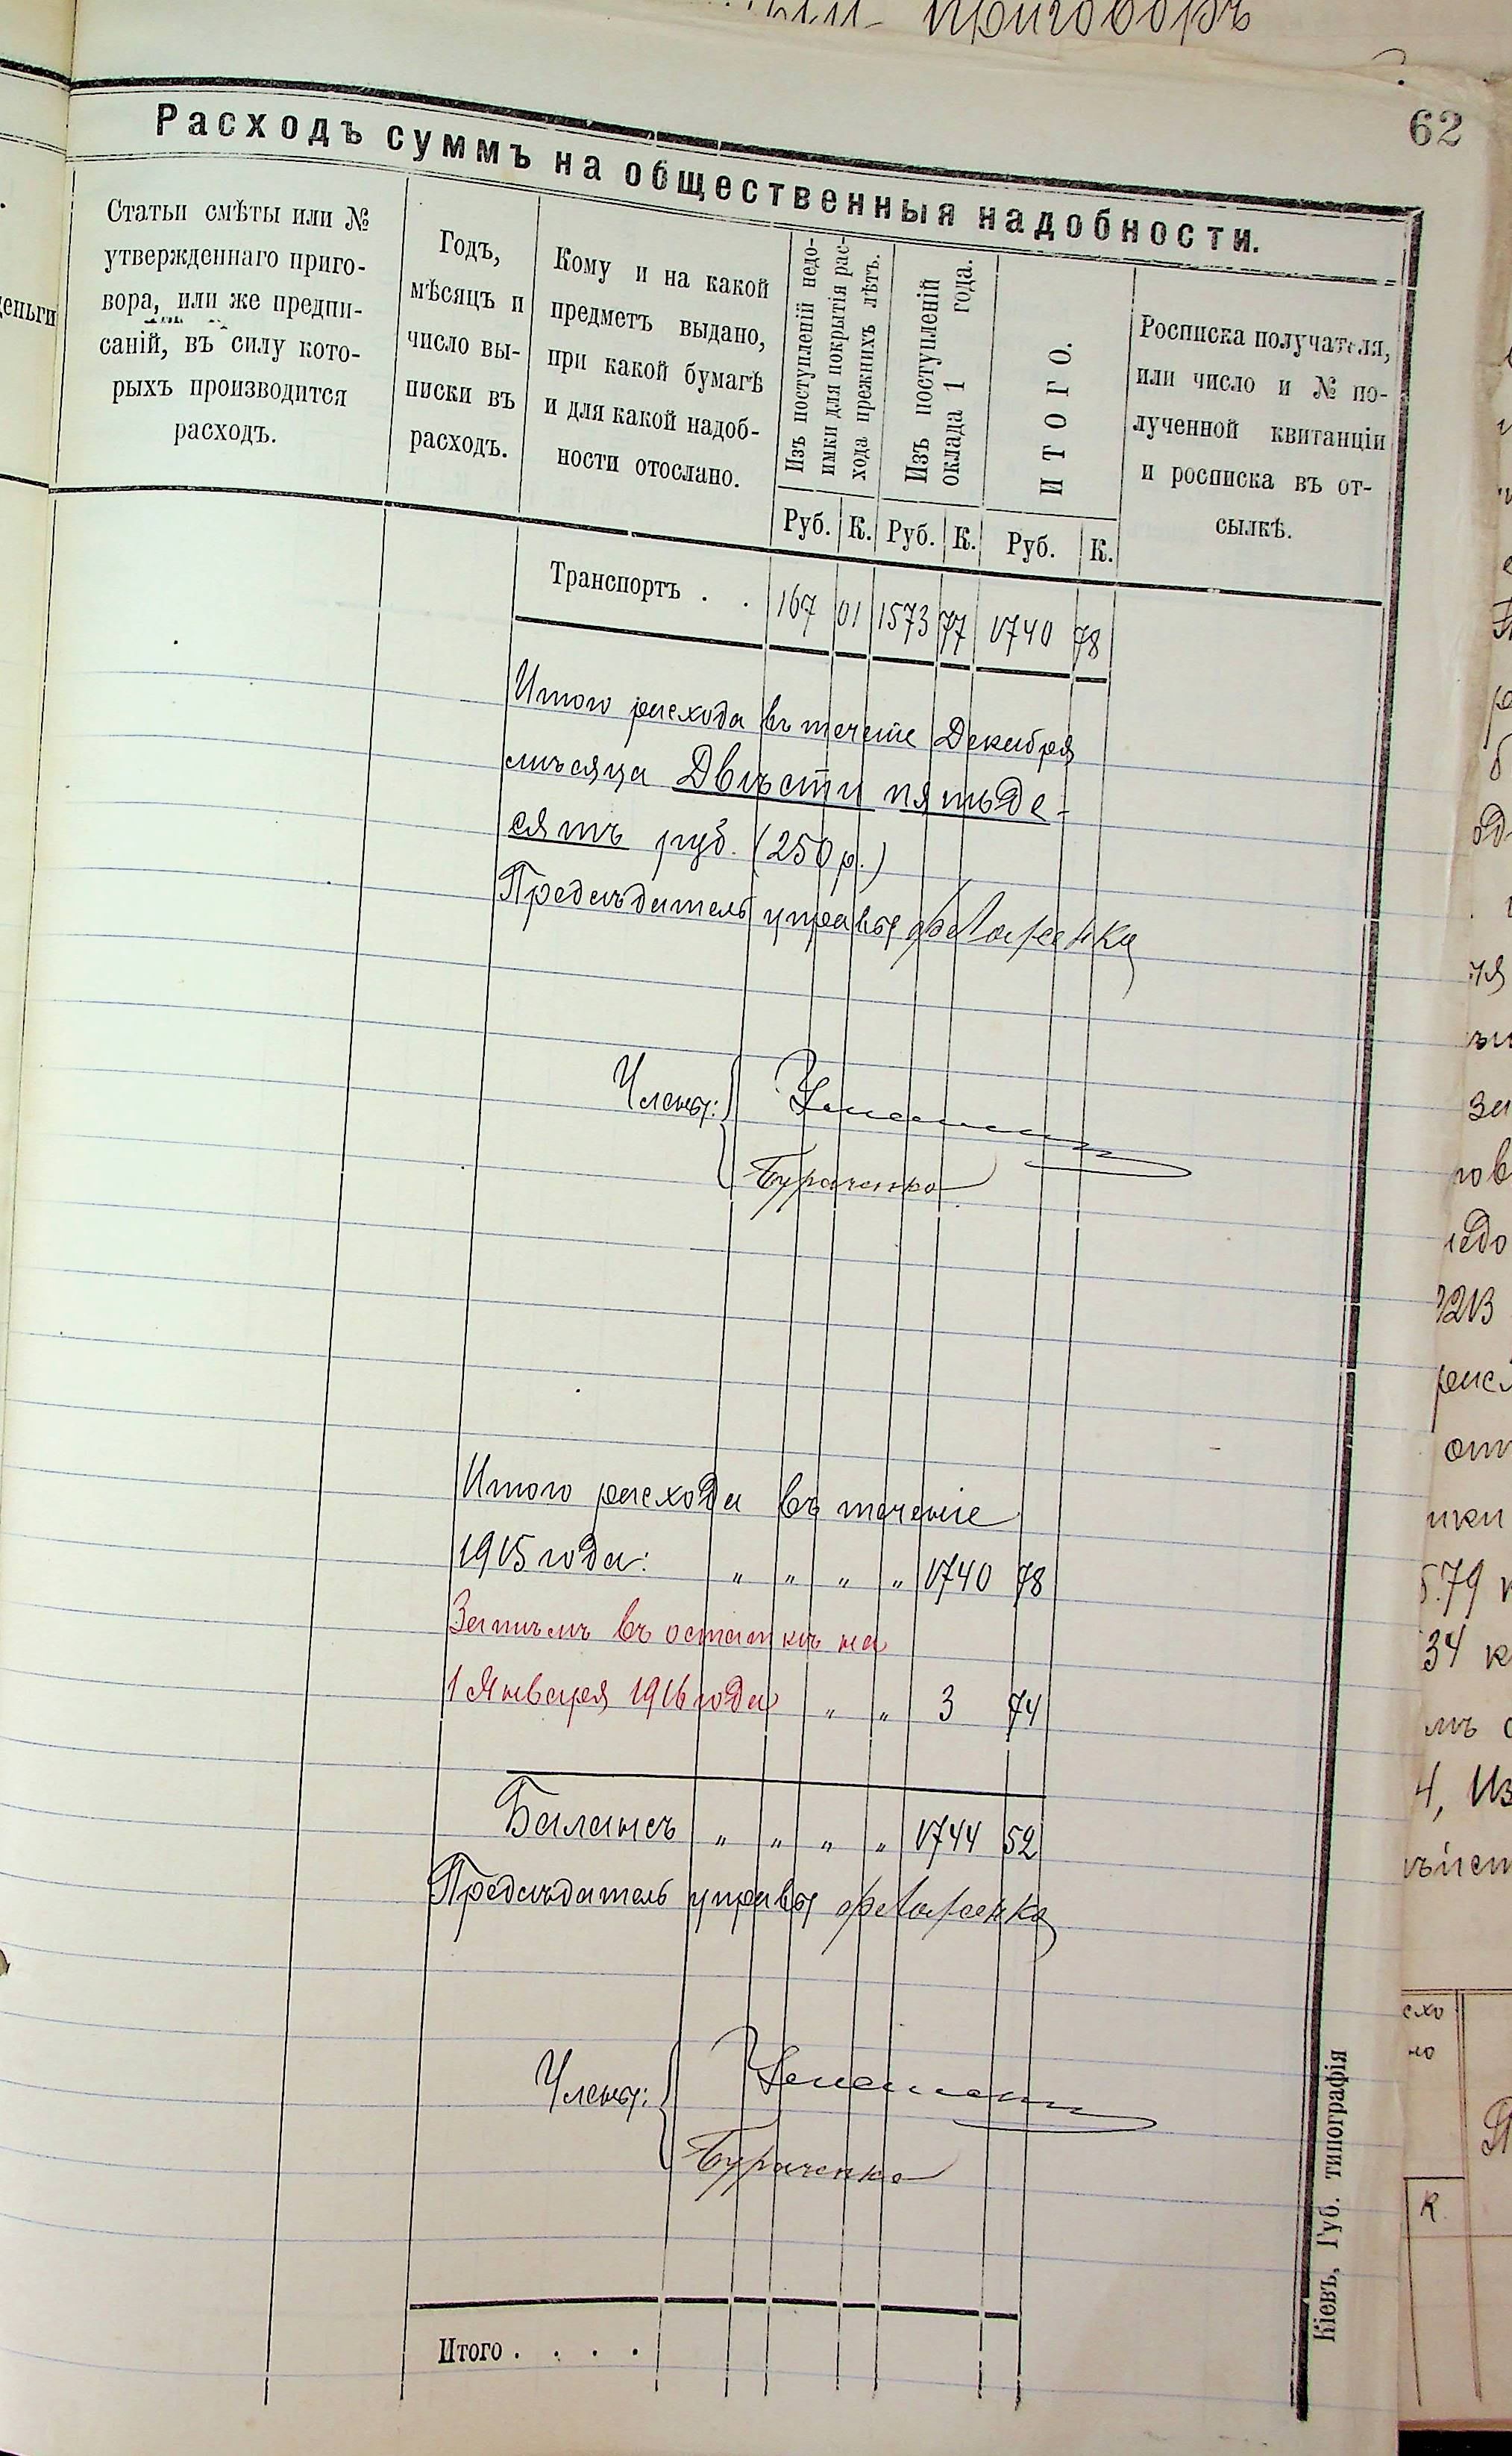 приговоръ
62
Расходъ суммъ на общественныя надобности.
Статьи смѣты или №
утвержденнаго приго-
вора, или же предпи-
саній, въ силу кото-
рыхъ производится
расходъ.
Годъ,
мѣсяцъ и
число вы-
писки въ
расходъ.
Кому и на какой
предметъ выдано,
при какой бумагѣ
и для какой надоб-
ности отослано.
Изъ поступленій недо-
имки для покрытія рас-
хода прежнихъ лѣтъ.
Изъ поступленій
оклада 1 года.
ИТОГО.
Росписка получателя,
или число и № по-
лученной квитанціи
и росписка въ от-
сылкѣ.
Руб. К. Руб. К. Руб. К.
Транспортъ . . 167 01 1573 77 1740 78
Итого расхода въ течете Декабря
мѣсяца Двѣсти пятьде-
сятъ руб. (250 р.)
Предсѣдатель управы
Члены:
Бураченко
Итого расхода въ теченіе
1915 года: " " " " 1740 78
Затѣмъ въ остаткѣ на
1 Января 1916 года " " 3 74
Балансъ " " " " 1744 52
Предсѣдатель управы
Члены:
Бураченко
Итого . . . .
Кіевъ, Губ. типографія